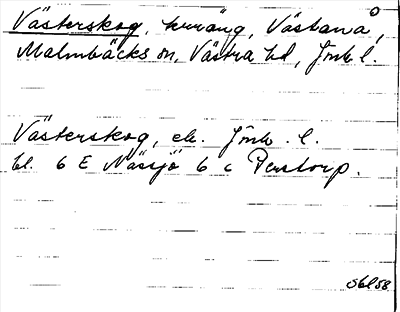 Västerskog, terräng, Västanå,
Malmbäcks sn, Västra hd, Jönk l.
Västerskog, ek. Jönk. l.
bl. 6 E Nässjö 6 c Perstorp.
S6l58